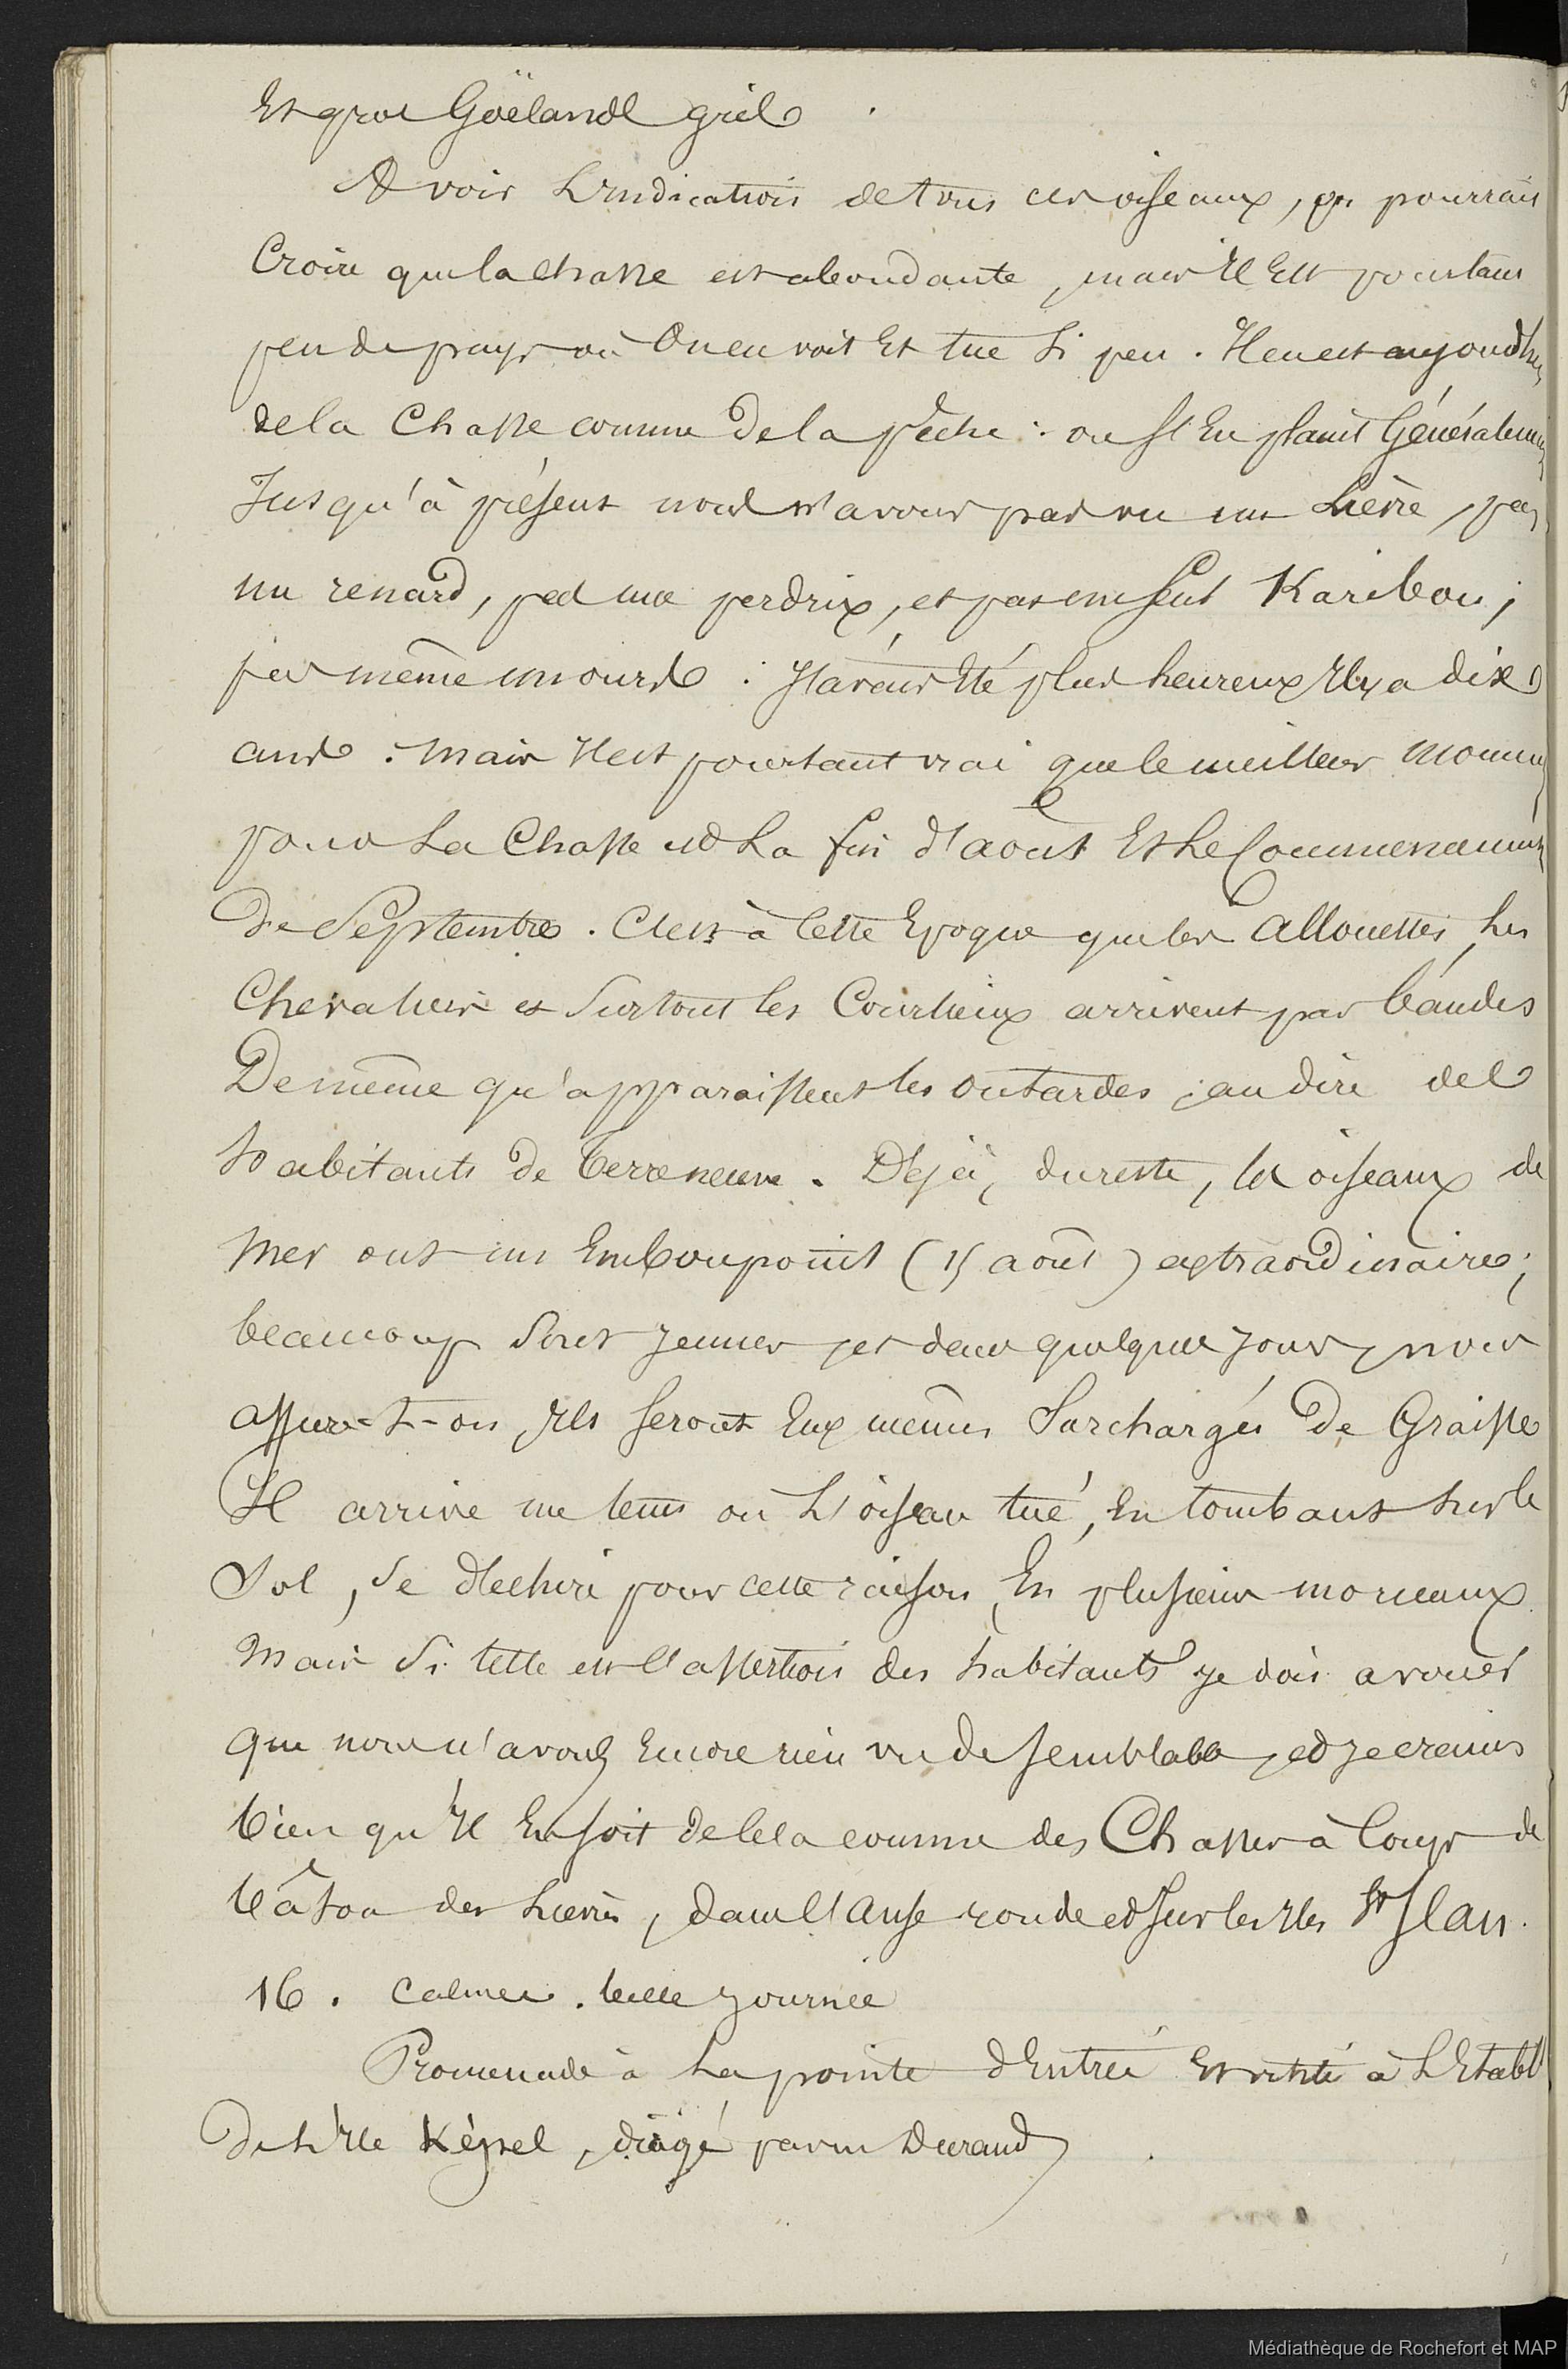 Et gros Goëlands gris
A voir L'indication de tous ces oiseaux, on pourrait
Croire que la chasse est abondante, mais Il Est pourtant
peu de pays où On en voit Et tue Si peu. Il en est aujourd'hui
de la Chasse comme de la pêche : on s'En plaint Généralement
Jusqu'à présent nous n'avons pas vu un Lièvre, pas
un renard, pas une perdrix, et pas un seul Karibou ;
pas même un ours. J'avais Eté plus heureux Il y a dix
ans. Mais Il est pourtant vrai que le meilleur moment
pour La Chasse est La fin d'août Et Le Commencement
De Septembre. C'est à Cette Epoque que les allouettes, les
Chevaliers et Surtout les Courlieux arrivent par bandes
De même qu'apparaissent les outardes, au dire des
habitants de Terreneuve. Déjà, du reste, les oiseaux de
Mer ont un Embonpoint (15 août) extraordinaire ;
beaucoup Sont Jeunes, et dans quelques jours, nous
assure-t-on, Ils seront Eux mêmes Surchargés De Graisse
Il arrive un tems où L'oiseau tué, En tombant sur le
Sol, Se déchire pour cette raison, En plusieurs morceaux.
Mais Si telle est l'assertion des habitants je dois avouer
que nous n'avons Encore rien vu de semblable, et je crains
bien qu'Il En soit de Cela comme des Chasses à Coups de
bâton des Lièvres, dans l'anse ronde et sur les Iles St Jean.
16. Calme. belle journée
Promenade à La pointe d'Entrée Et visite à L'Etabt
De L'Ile Képpel, dirigé par un Durand
Médiathèque de Rochefort et MAP